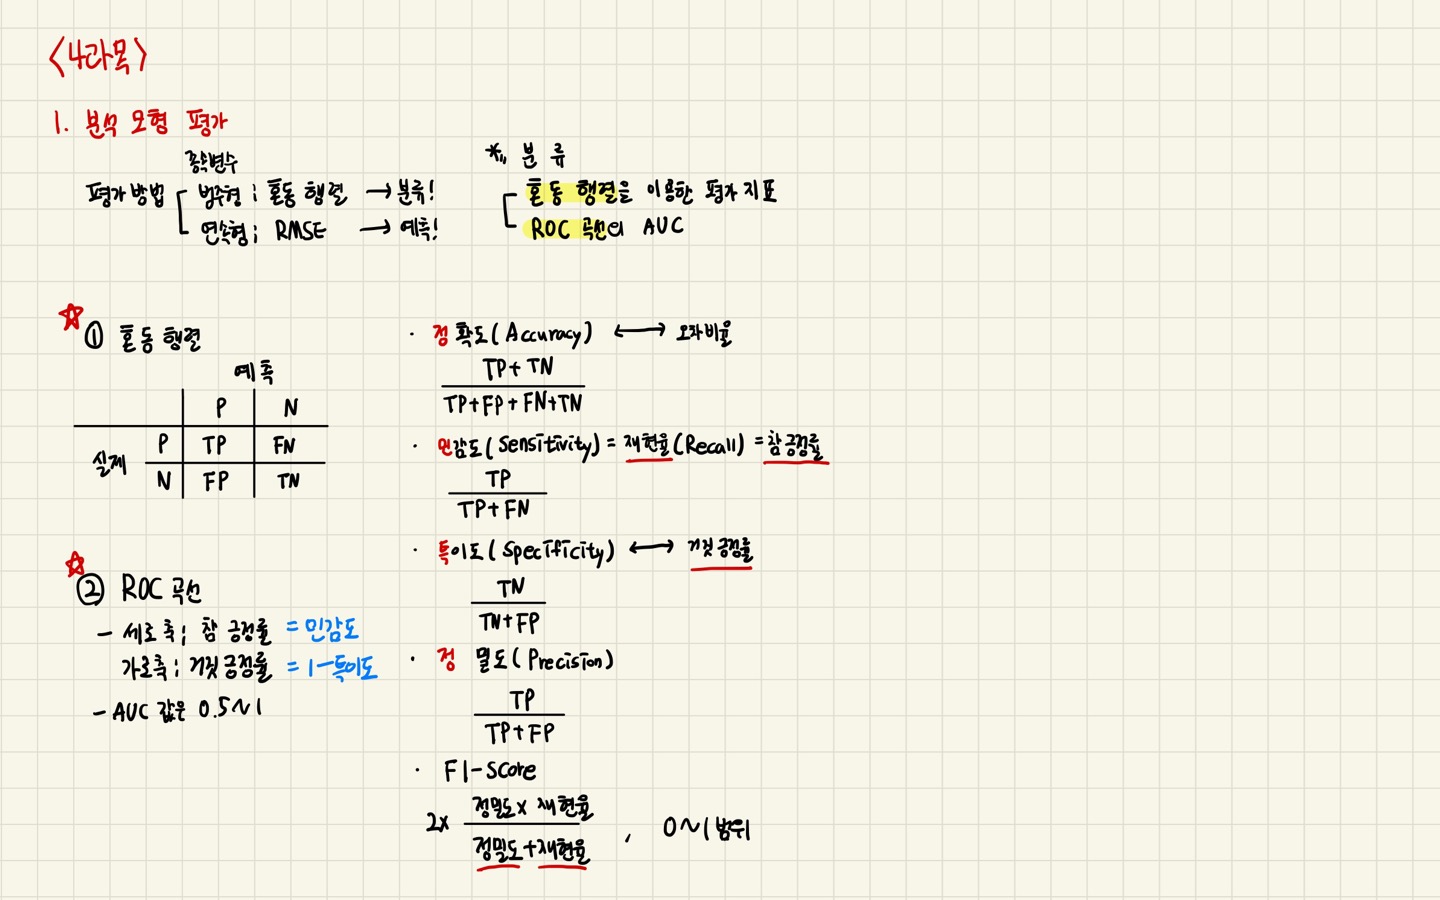 <4과목>
1. 분석 모형 평가
종속변수
평가 방법
범주형 ; 혼동 행렬 → 분류!
연속형 ; RMSE → 예측!
*,, 분류
혼동 행렬을 이용한 평가 지표
ROC 곡선의 AUC
☆ ① 혼동 행렬
예측
P N
실제 P TP FN
N FP TN
☆ ② ROC 곡선
- 세로축 ; 참 긍정률 = 민감도
가로축 ; 거짓 긍정률 = 1-특이도
- AUC 값은 0.5~1
· 정확도(Accuracy) ↔ 오차비율
TP+TN
TP+FP+FN+TN
· 민감도(Sensitivity) = 재현율(Recall) = 참 긍정률
TP
TP+FN
· 특이도(Specificity) ↔ 거짓 긍정률
TN
TN+FP
· 정밀도(Precision)
TP
TP+FP
· F1-Score
2x 정밀도 x 재현율
정밀도+재현율
, 0~1 범위